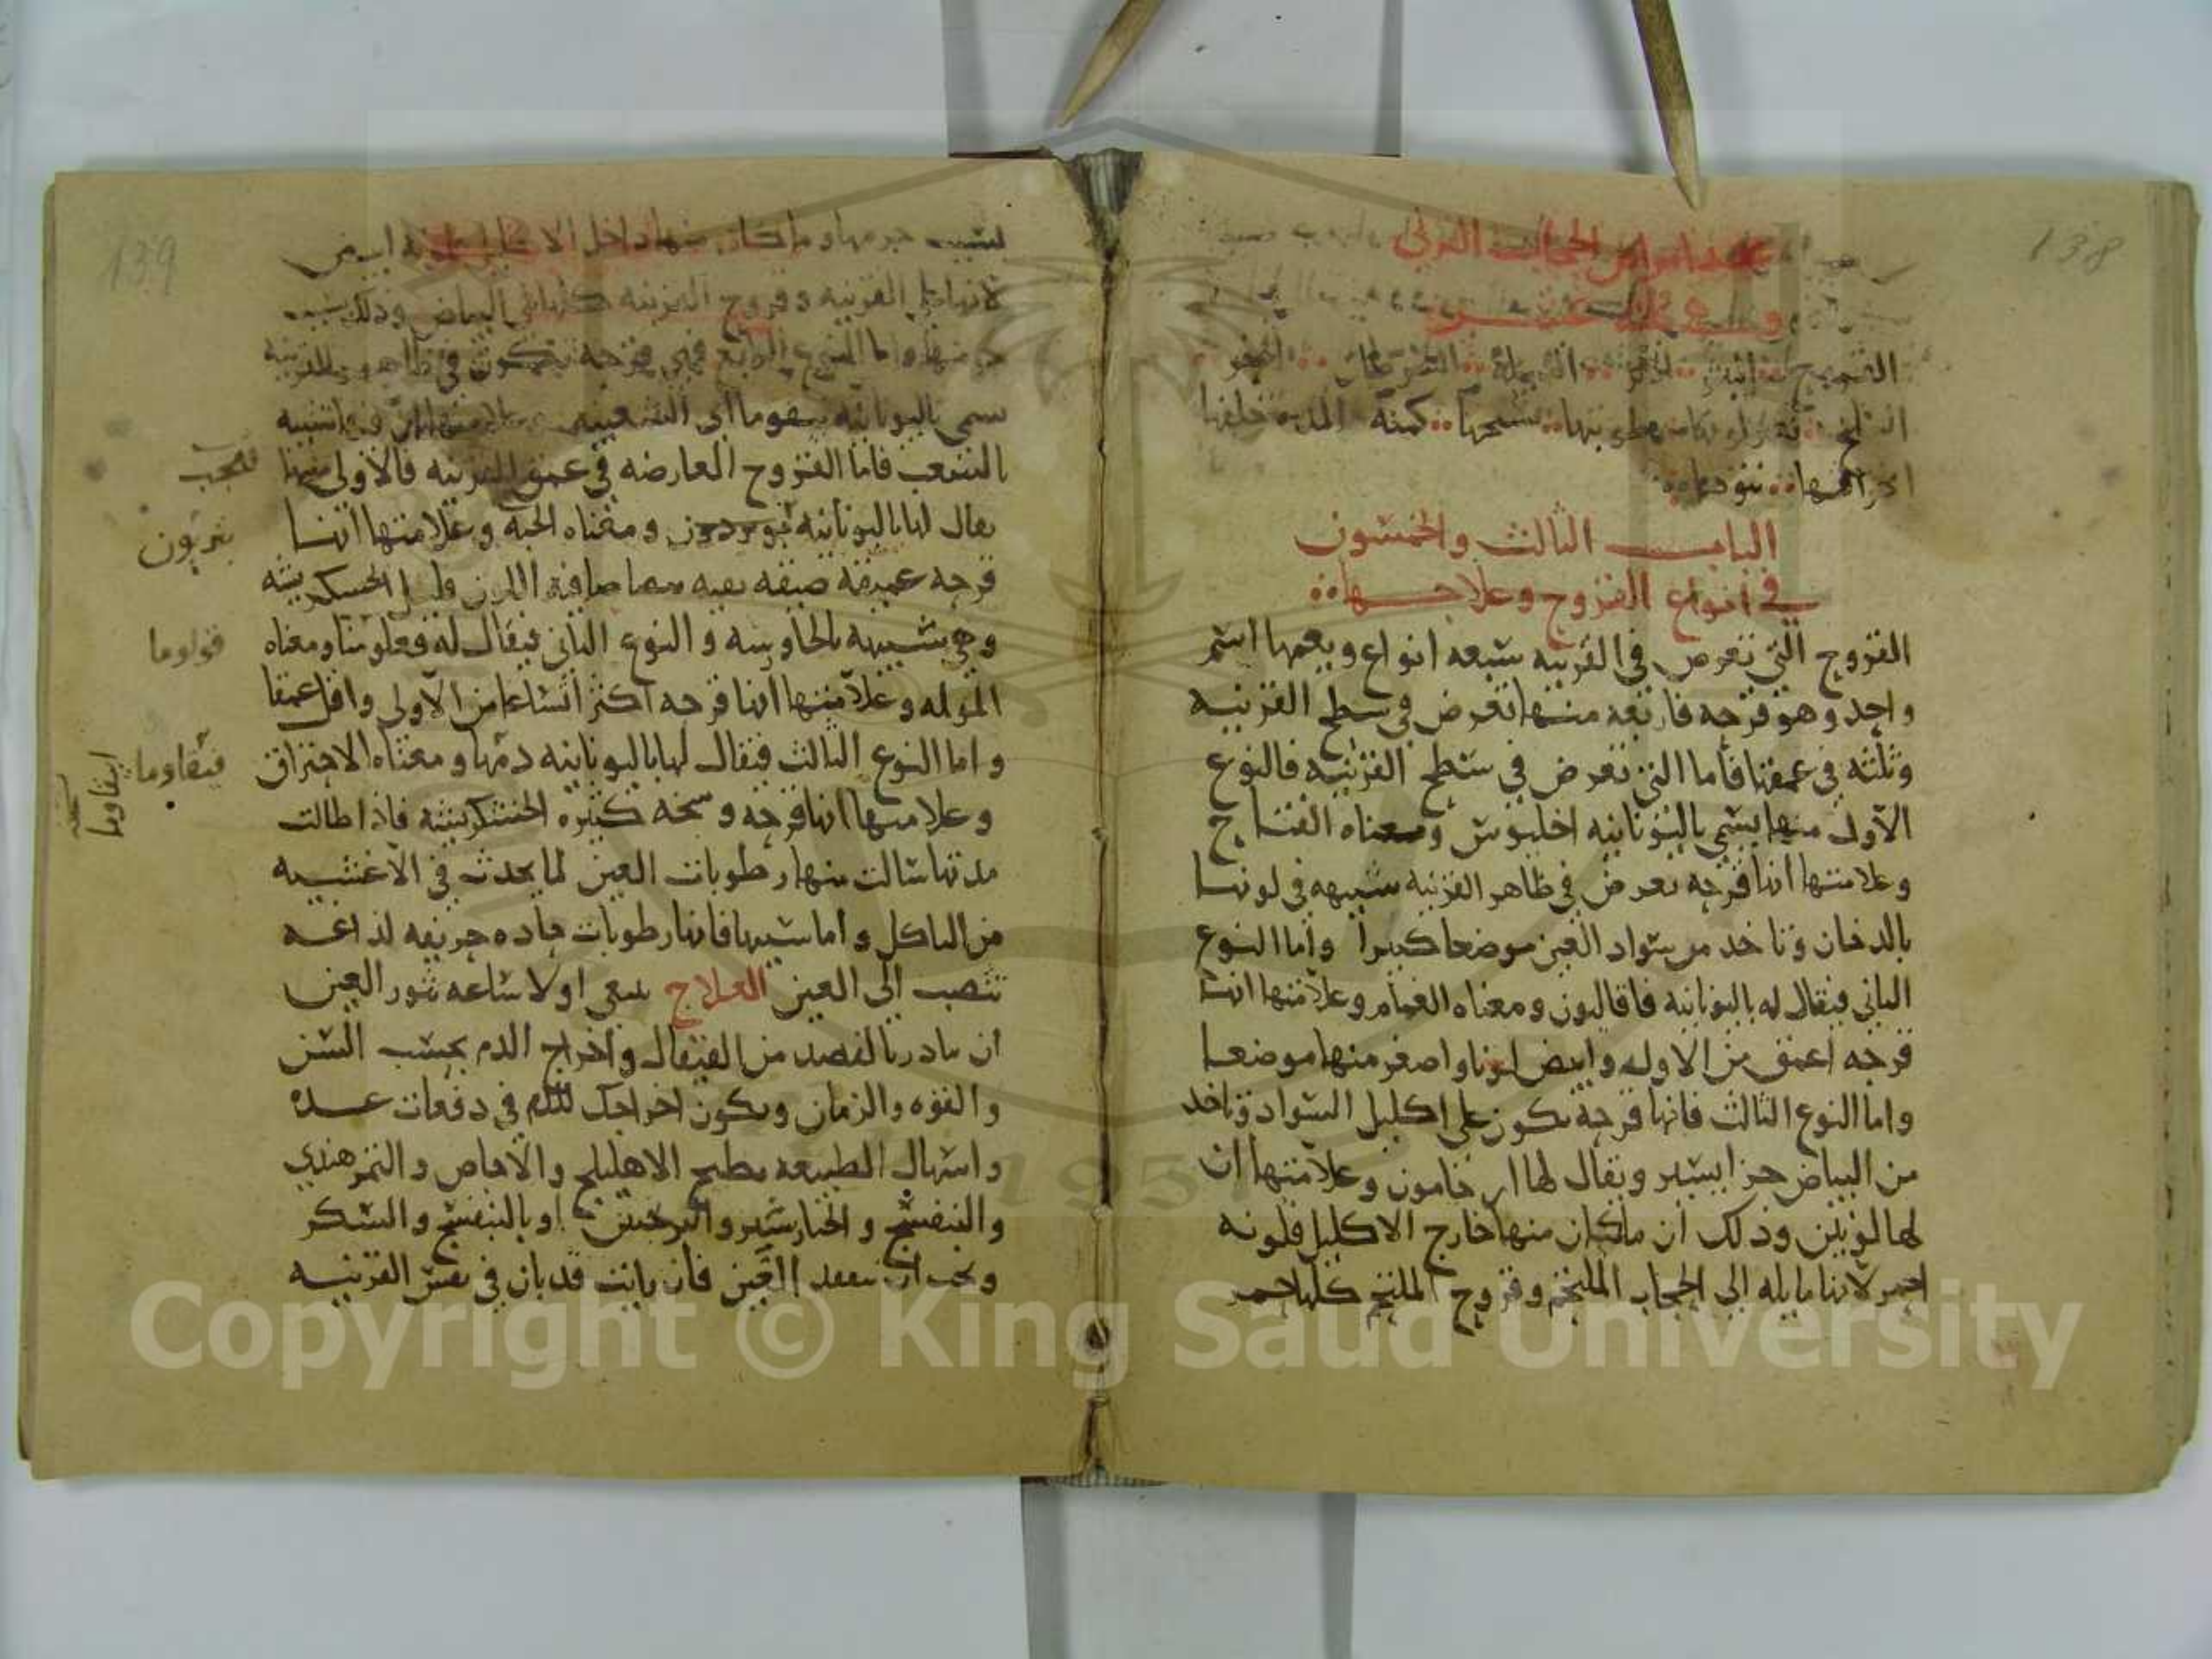 138
عدد امراض الحجاب القرني
وهي ثلثة عشر
القروح البثر الاثر الدبيلة السرطان الحفر
السلخ تغير لونها رطوبتها تشنجها كمنة المدة خلفها
انخراقها نتوها
الباب الثالث والخمسون
في انواع القروح وعلاجها
القروح التي تعرض في القرنيه سبعه انواع ويعمها اسم
واحد وهو قرحه فاربعه منها تعرض في سطح القرنيه
وثلثه في عمقها فاما التي تعرض في سطح القرنيه فالنوع
الاول منها يسمي باليونانيه اخليوس ومعناه القتاح
وعلامتها انها قرحه تعرض في ظاهر القرنيه شبيهه في لونها
بالدخان وتاخد من سواد العين موضعا كبيرا واما النوع
الثاني فيقال له باليونانيه فاقاليون ومعناه الغمام وعلامتها انها
قرحه اعمق من الاوله وابيض لونا واصغر منها موضعا
واما النوع الثالث فانها قرحة تكون على اكليل السواد وتاخد
من البياض جزا يسير ويقال لها ارخامون وعلامتها ان
لها لونين وذلك ان ما كان منها خارج الاكليل فلونه
احمر لانها مايله الى الحجاب الملتحم وقروح الملتحم كلها حمر
139
لسبب حرمها وما كان منها داخل الاكليل فلونه ابيض
لانها على القرنيه وقروح القرنيه كلها الى البياض وذلك بسبب
جرمها واما النوع الرابع فهي قرحة تتكون في ظاهر القرنيه
تسمى باليونانيه بيقوما اي الشعبيه وعلامتها انها قرحة شبيه
بالشعب فاما القروح العارضه في عمق القرنيه فالاولى منها
يقال لها باليونانيه بوبردون ومعناه الجبة وعلامتها انها
قرحه عميقه ضيقه نقيه صافية اللون قليل الخشكريشه
وهي شبيهه بالجاورسه والنوع الثاني فيقال له فعلومنا ومعناه
الموله وعلامتها انها قرحه اكثر اتساعا من الاولى واقل عمقا
واما النوع الثالث فيقال لها باليونانيه دمها ومعناه الاحتراق
وعلامتها انها قرحه وسخه كثيره الخشكريشه فاذا طالت
مدتها سالت منها رطوبات العين لما يحدث في الاغشيه
من التاكل واما سببها فانها رطوبات حاده حريفه لذاعه
تنصب الى العين العلاج ينبغي اولا ساعه تثور العين
ان تبادر بالفصد من القيفال واخراج الدم بحسب السن
والقوه والزمان ويكون اخراجك للدم في دفعات عده
واسهال الطبيعه بطبيخ الاهليلج والاجاص والتمر هندي
والبنفسج والخيار شنبر والترنجبين او بالبنفسج والسكر
ويجب ان تتفقد العين فان رايت قد بان في نفس القرنيه
بثريون
قولوما
فيقاوما
ابيقاوما
نسخه